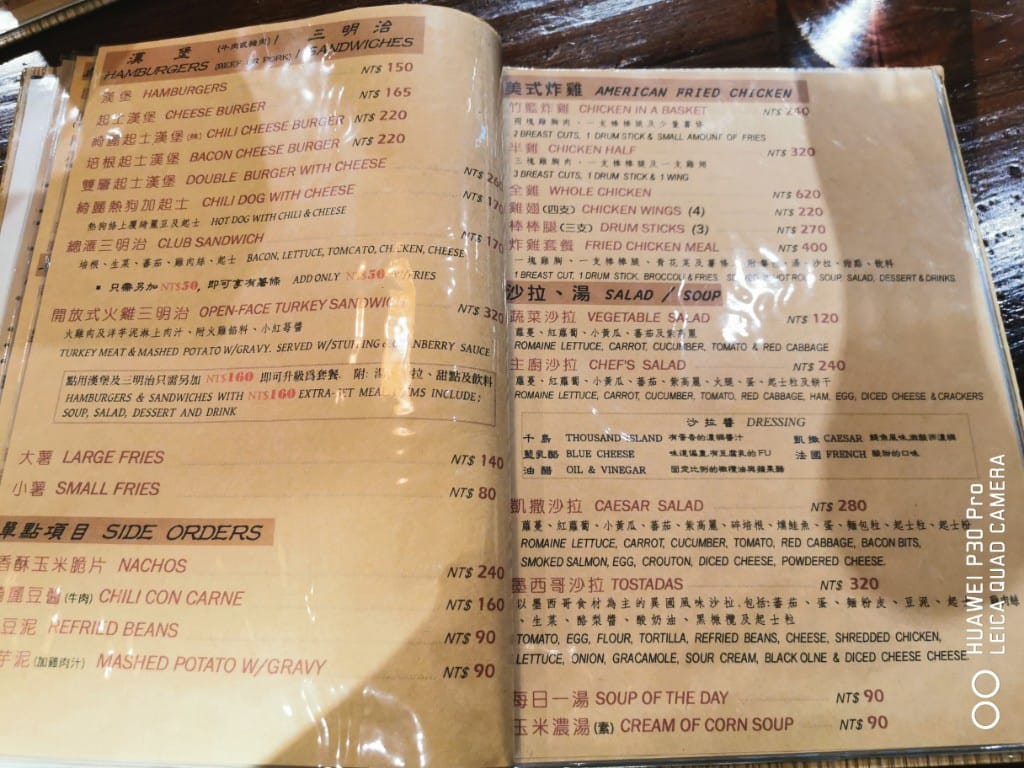 漢堡 (牛肉或豬肉) / 三明治
HAMBURGERS (BEEF OR PORK) / SANDWICHES
漢堡 HAMBURGERS NT$ 150
起士漢堡 CHEESE BURGER NT$ 165
綺麗起士漢堡(辣) CHILI CHEESE BURGER NT$ 220
培根起士漢堡 BACON CHEESE BURGER NT$ 220
雙層起士漢堡 DOUBLE BURGER WITH CHEESE NT$ 260
綺麗熱狗加起士 CHILI DOG WITH CHEESE NT$ 170
熱狗絲上覆綺麗豆及起士 HOT DOG WITH CHILI & CHEESE
總滙三明治 CLUB SANDWICH NT$ 170
培根、生菜、蕃茄、雞肉絲、起士 BACON, LETTUCE, TOMCATO, CHICKEN, CHEESE
▪ 只需另加 NT$50, 即可享有薯條 ADD ONLY NT$50 FRIES
開放式火雞三明治 OPEN-FACE TURKEY SANDWICH NT$ 320
火雞肉及洋芋泥淋上肉汁、附火雞餡料、小紅莓醬
TURKEY MEAT & MASHED POTATO W/GRAVY. SERVED W/STUFFING & CRANBERRY SAUCE
點用漢堡及三明治只需另加 NT$160 即可升級爲套餐. 附: 湯、沙拉、甜點及飲料
HAMBURGERS & SANDWICHES WITH NT$160 EXTRA-SET MEAL ITEMS INCLUDE:
SOUP, SALAD, DESSERT AND DRINK
大薯 LARGE FRIES NT$ 140
小薯 SMALL FRIES NT$ 80
單點項目 SIDE ORDERS
香酥玉米脆片 NACHOS NT$ 240
綺麗豆醬(牛肉) CHILI CON CARNE NT$ 160
豆泥 REFRIED BEANS NT$ 90
芋泥(加雞肉汁) MASHED POTATO W/GRAVY NT$ 90
美式炸雞 AMERICAN FRIED CHICKEN
竹籃炸雞 CHICKEN IN A BASKET NT$ 240
兩塊雞胸肉、一支棒棒腿及少量薯條
2 BREAST CUTS, 1 DRUM STICK & SMALL AMOUNT OF FRIES
半雞 CHICKEN HALF NT$ 320
三塊雞胸肉、一支棒棒腿及一支雞翅
3 BREAST CUTS, 1 DRUM STICK & 1 WING
全雞 WHOLE CHICKEN NT$ 620
雞翅(四支) CHICKEN WINGS (4) NT$ 220
棒棒腿(三支) DRUM STICKS (3) NT$ 270
炸雞套餐 FRIED CHICKEN MEAL NT$ 400
一塊雞胸、一支棒棒腿、青花菜及薯條、附餐包、湯、沙拉、甜點、飲料
1 BREAST CUT, 1 DRUM STICK. BROCCOLI & FRIES. HOT ROLL SOUP, SALAD, DESSERT & DRINKS
沙拉、湯 SALAD / SOUP
蔬菜沙拉 VEGETABLE SALAD NT$ 120
蘿蔓、紅蘿蔔、小黃瓜、蕃茄及紫高麗
ROMAINE LETTUCE, CARROT, CUCUMBER, TOMATO & RED CABBAGE
主廚沙拉 CHEF'S SALAD NT$ 240
蘿蔓、紅蘿蔔、小黃瓜、蕃茄、紫高麗、火腿、蛋、起士粒及餅干
ROMAINE LETTUCE, CARROT, CUCUMBER, TOMATO, RED CABBAGE, HAM, EGG, DICED CHEESE & CRACKERS
沙拉醬 DRESSING
千島 THOUSAND ISLAND 有茶香的濃稠醬汁 凱撒 CAESAR 鯷魚風味微酸而濃稠
藍乳酪 BLUE CHEESE 味道偏重,有豆腐乳的FU 法國 FRENCH 酸甜的口味
油醋 OIL & VINEGAR 固定比例的橄欖油與蘋果醋
凱撒沙拉 CAESAR SALAD NT$ 280
蘿蔓、紅蘿蔔、小黃瓜、蕃茄、紫高麗、碎培根、燻鮭魚、蛋、麵包粒、起士粒、起士粉
ROMAINE LETTUCE, CARROT, CUCUMBER, TOMATO, RED CABBAGE, BACON BITS,
SMOKED SALMON, EGG, CROUTON, DICED CHEESE, POWDERED CHEESE.
墨西哥沙拉 TOSTADAS NT$ 320
以墨西哥食材為主的異國風味沙拉,包括:蕃茄、蛋、麵粉皮、豆泥、起士、雞肉絲
、生菜、酪梨醬、酸奶油、黑橄欖及起士粒
TOMATO, EGG, FLOUR, TORTILLA, REFRIED BEANS, CHEESE, SHREDDED CHICKEN,
LETTUCE, ONION, GRACAMOLE, SOUR CREAM, BLACK OLNE & DICED CHEESE CHEESE.
每日一湯 SOUP OF THE DAY NT$ 90
玉米濃湯(素) CREAM OF CORN SOUP NT$ 90
HUAWEI P30 Pro
LEICA QUAD CAMERA